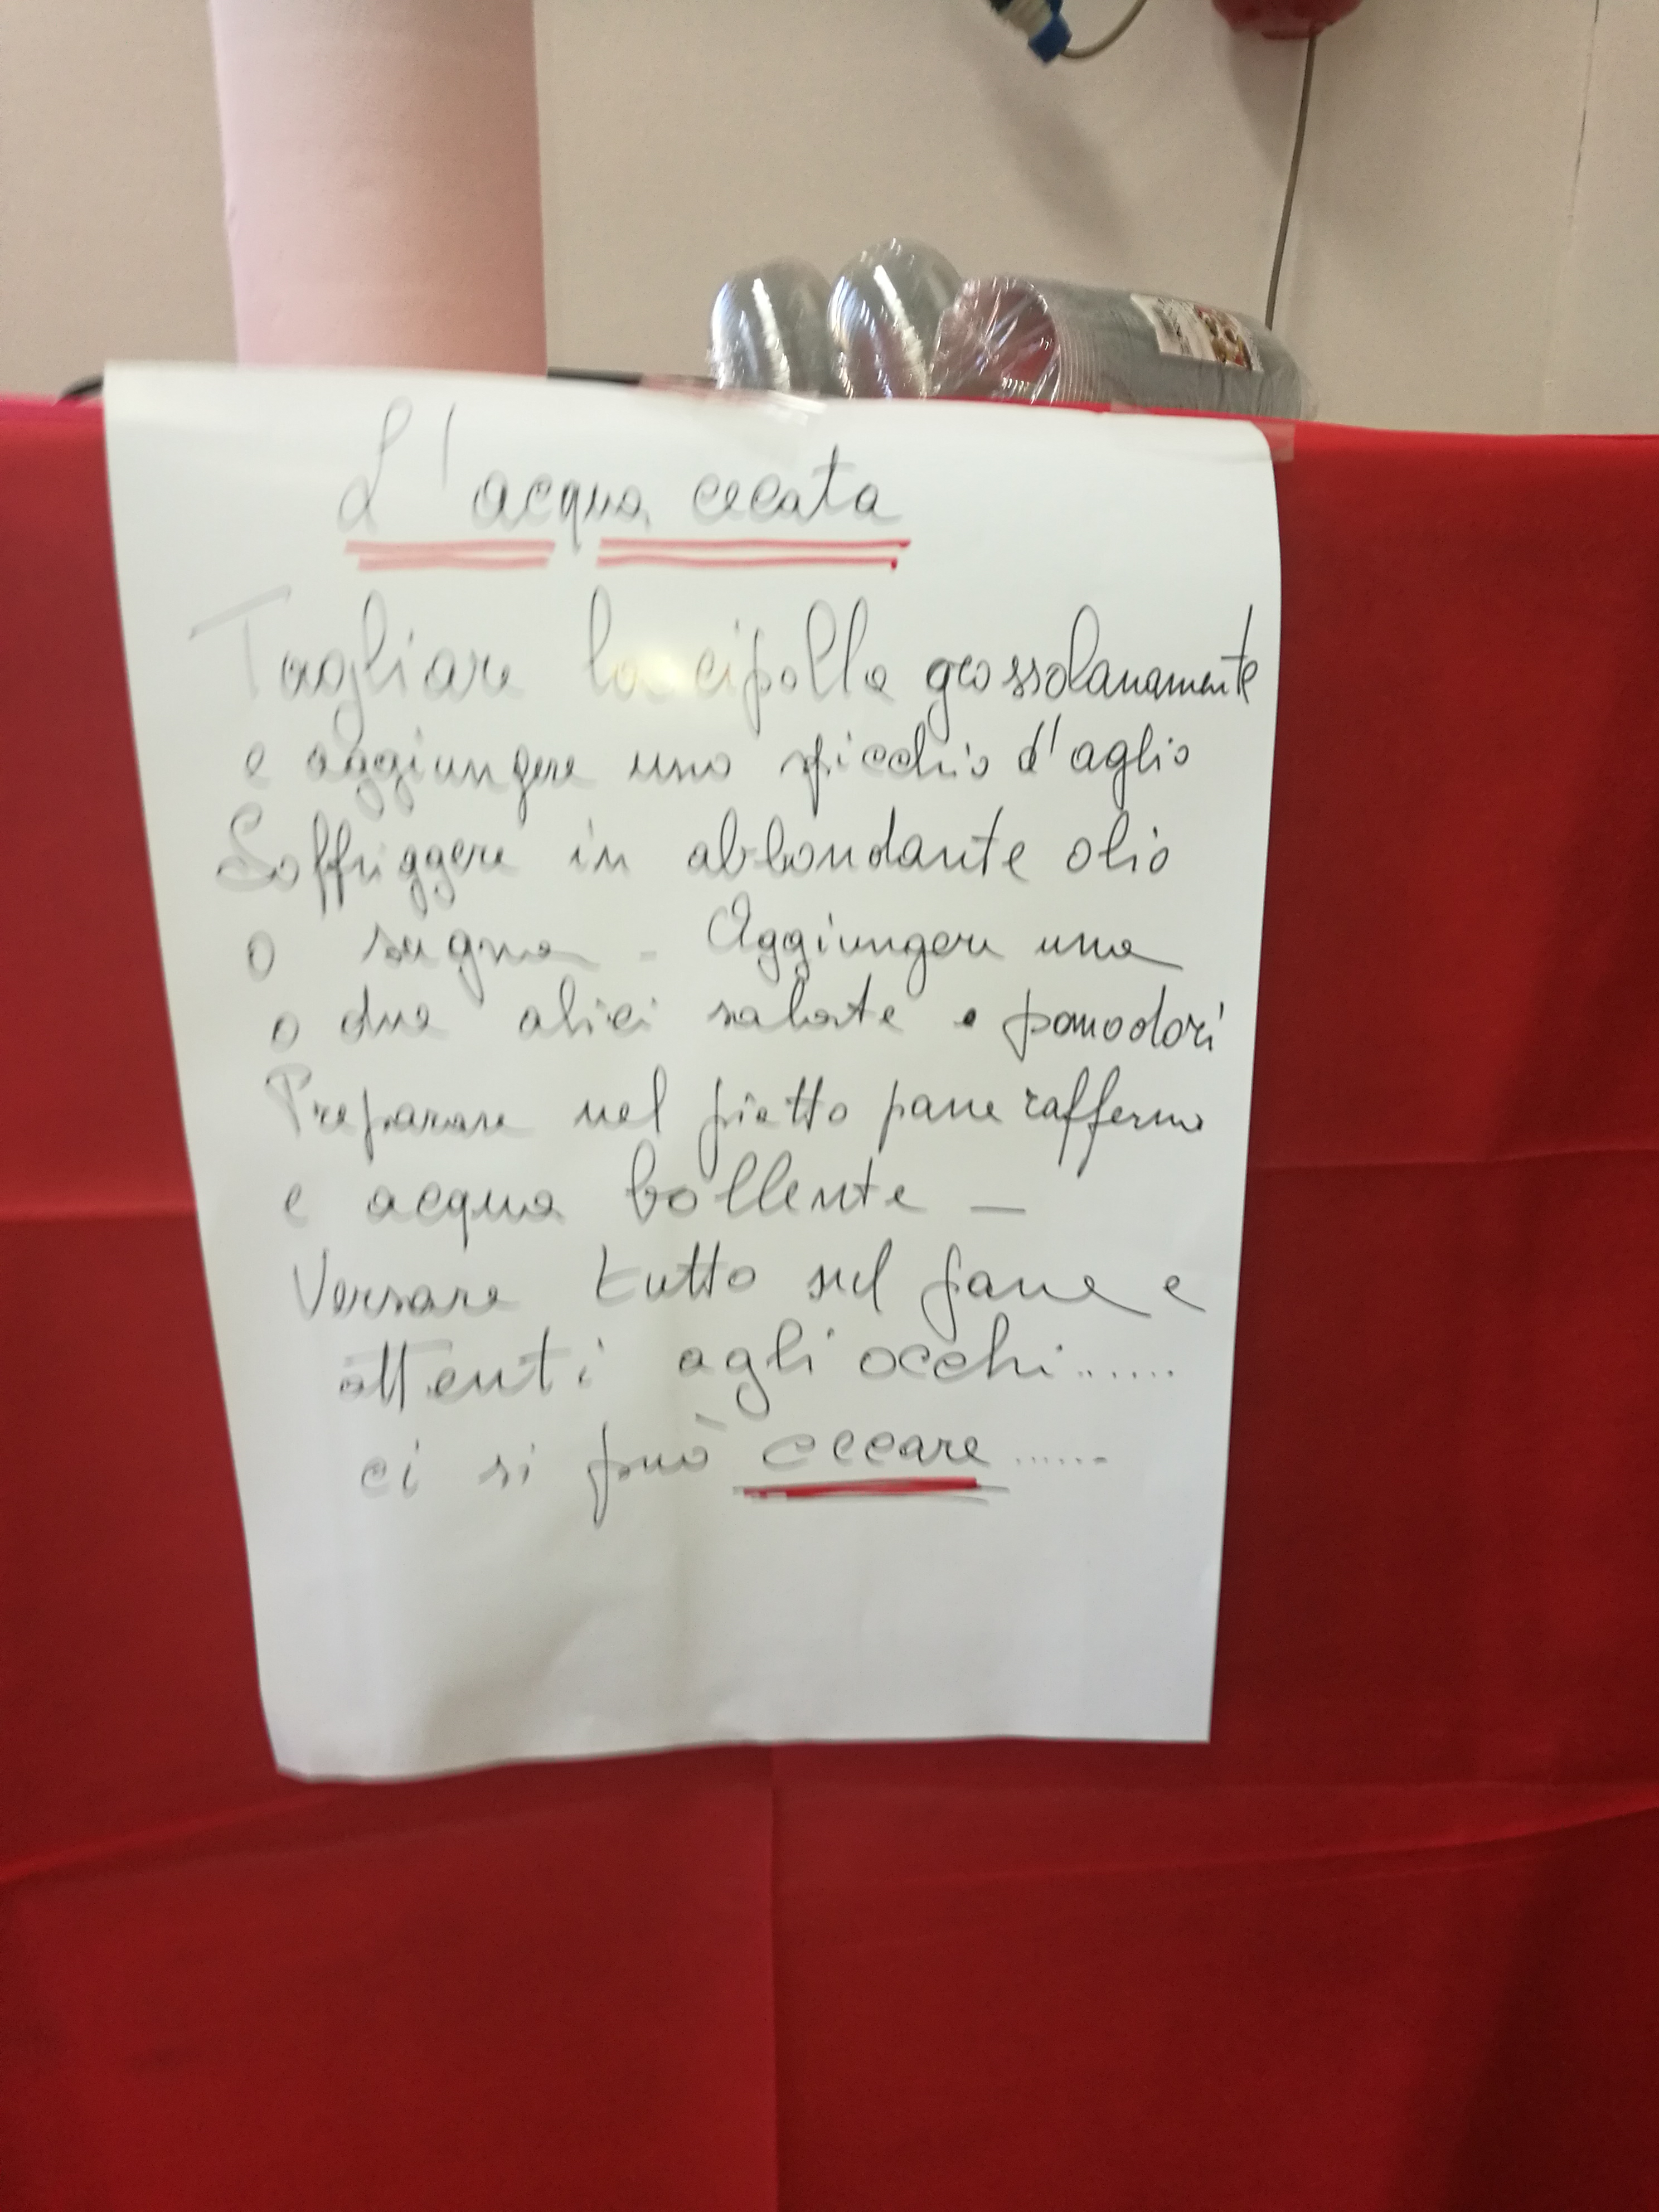 L'acqua cecata
Tagliare la cipolla grossolanamente
e aggiungere uno spicchio d'aglio
Soffriggere in abbondante olio
o sugna - Aggiungere una
o due alici salate e pomodori
Preparare nel piatto pane rafferno
e acqua bollente -
Versare tutto sul pane e
attenti agli occhi......
ci si può cecare......